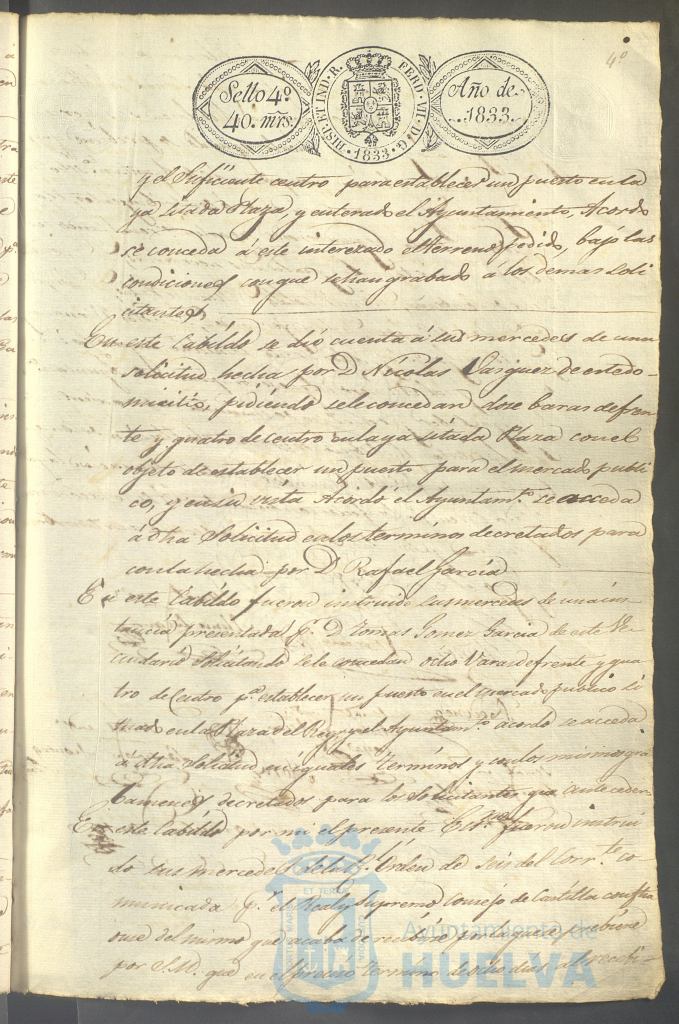 4º
Sello 4º
40. mrs.
HISP. ET IND. R. FERD. VII. D. G.
1833
Año de
1833.
y el suficiente centro para establecer un puesto en la
ya sitada Plaza, y enterado el Ayuntamiento, Acordó
se conceda á este interezado el terreno pedido, bajo las
condiciones con que se han grabado á los demas Soli
citantes
En este Cabildo se dió cuenta á sus mercedes de una
solicitud hecha por D Nicolas Vasquez de este do-
micilio, pidiendo se le concedan dose baras de fren-
te y quatro de centro en la ya sitada Plaza con el
objeto de establecer un puesto para el mercado publi
co, y en su vista Acordó el Ayuntamto. se acceda
á dha Solicitud en los terminos decretados para
con la hecha por D. Rafael García
En este Cabildo fueron instruidos sus mercedes de una ins
tancia presentada p.r D Tomas Gomez Garcia de este Ve-
cindario solicitando se le concedan ocho Varas de frente y qua
tro de Centro p.a establecer un puesto en el mercado publico si
tuado en la Plaza del Rey, y el Ayuntam.to acordó se acceda
á dha Solicitud en iguales Terminos y con los mismos gra
bamenes decretados para los Solicitantes que anteceden
En este Cabildo por mi el presente Es.no fueron instrui
dos sus mercedes de la R.l Orden de seis del Corr.te co
municada p.r el Real y Supremo Consejo de Castilla
del mismo que acaba de recibirse por la que se
por S.M. que en el preciso termino de ocho dias al recibi-
Ayuntamiento de
HUELVA